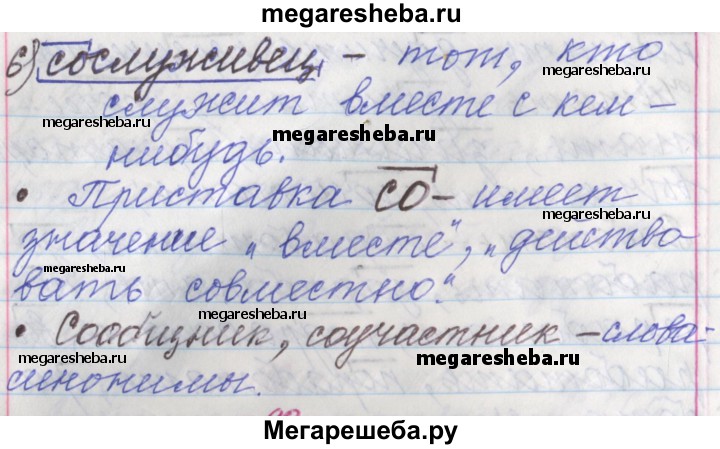 megaresheba.ru
6) сослуживец – тот, кто
служит вместе с кем –
megaresheba.ru
megaresheba.ru
нибудь.
• Приставка со- имеет
megaresheba.ru
значение „вместе", „действо
megaresheba.ru
вать совместно".
• Сообщник, соучастник – слова-
megaresheba.ru
megaresheba.ru
синонимы.
Мегарешеба.ру